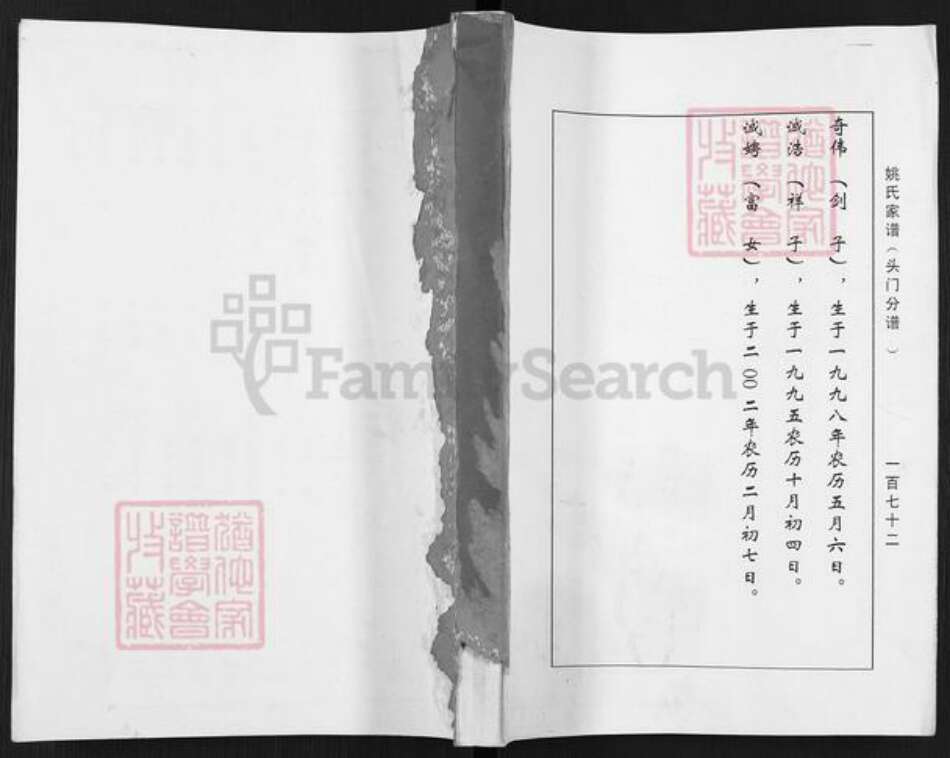 姚氏家谱（头门分谱）
一百七十二
奇伟（剑 子），生于一九九八年农历五月六日。
诚浩（祥 子），生于一九九五农历十月初四日。
诚娉（富 女），生于二〇〇二年农历二月初七日。
猶他家
譜學會
收藏
猶他家
譜學會
收藏
FamilySearch